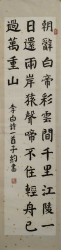 朝辭白帝彩雲間千里江陵一
日還兩岸猿聲啼不住輕舟已
過萬重山
李白詩一首子約書